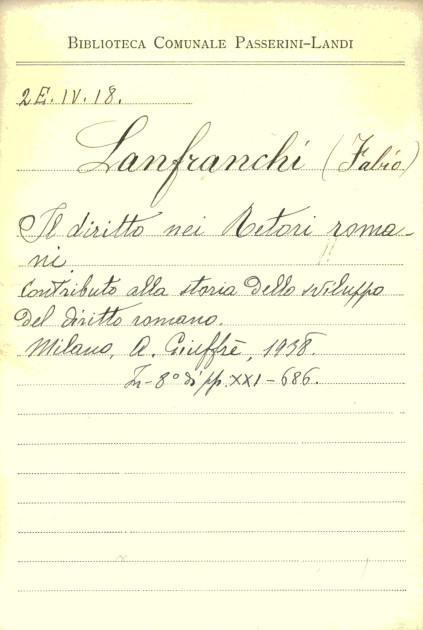 BIBLIOTECA COMUNALE PASSERINI-LANDI
2E.IV.18.
Lanfranchi (Fabio)
Il diritto nei Retori roma-
ni.
Contributo alla storia dello sviluppo
del diritto romano.
Milano, A. Giuffrè, 1938.
In-8° di pp. XXI-686.